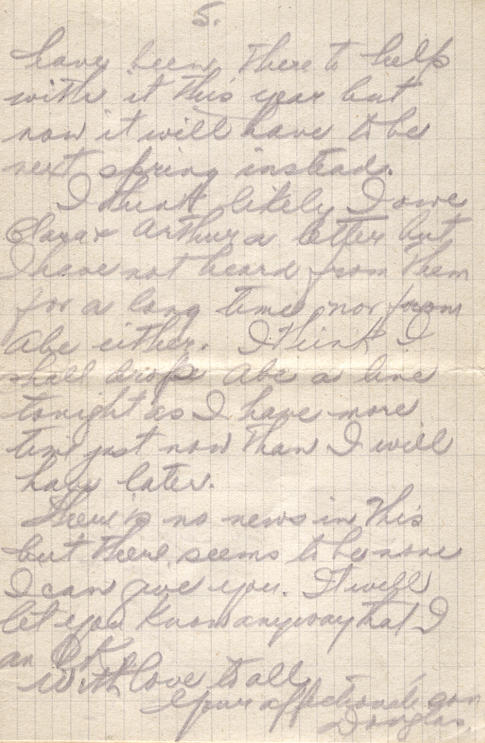 5.
have been there to help
with it this year but
now it will have to be
next spring instead.
I think likely I owe
Clara & Arthur a letter but
I have not heard from them
for a long time nor from
Abe either. I think I
shall drop Abe a line
tonight as I have more
time just now than I will
have later.
There is no news in this
but there seems to be none
I can give you. It will
let you know anyway that I
am O.K.
With love to all
Your affectionate son
Douglas